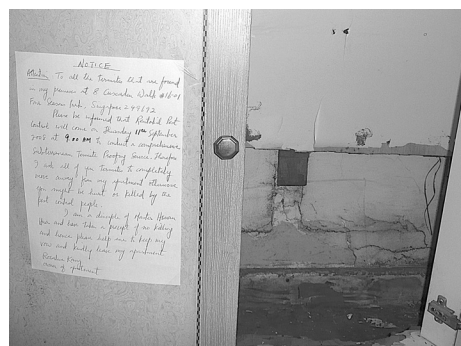 NOTICE
Attention: To all the Termites that are found
in my premises at 8 Cascadia Walk #16-01
Four Season Park, Singapore 249692
Please be informed that Rentokil Pest
Control will come on Thursday 11th September
2008 at 9.00 AM to conduct a comprehensive
Subterranean Termite Proofing Service. Therefore
I ask all of you Termites to completely
move away from my apartment otherwise
you might be hurt or killed by the
pest control people.
I am a disciple of Master
and has take a precept of no killing
and hence please help me to keep my
vow and kindly leave my apartment.
owner of apartment